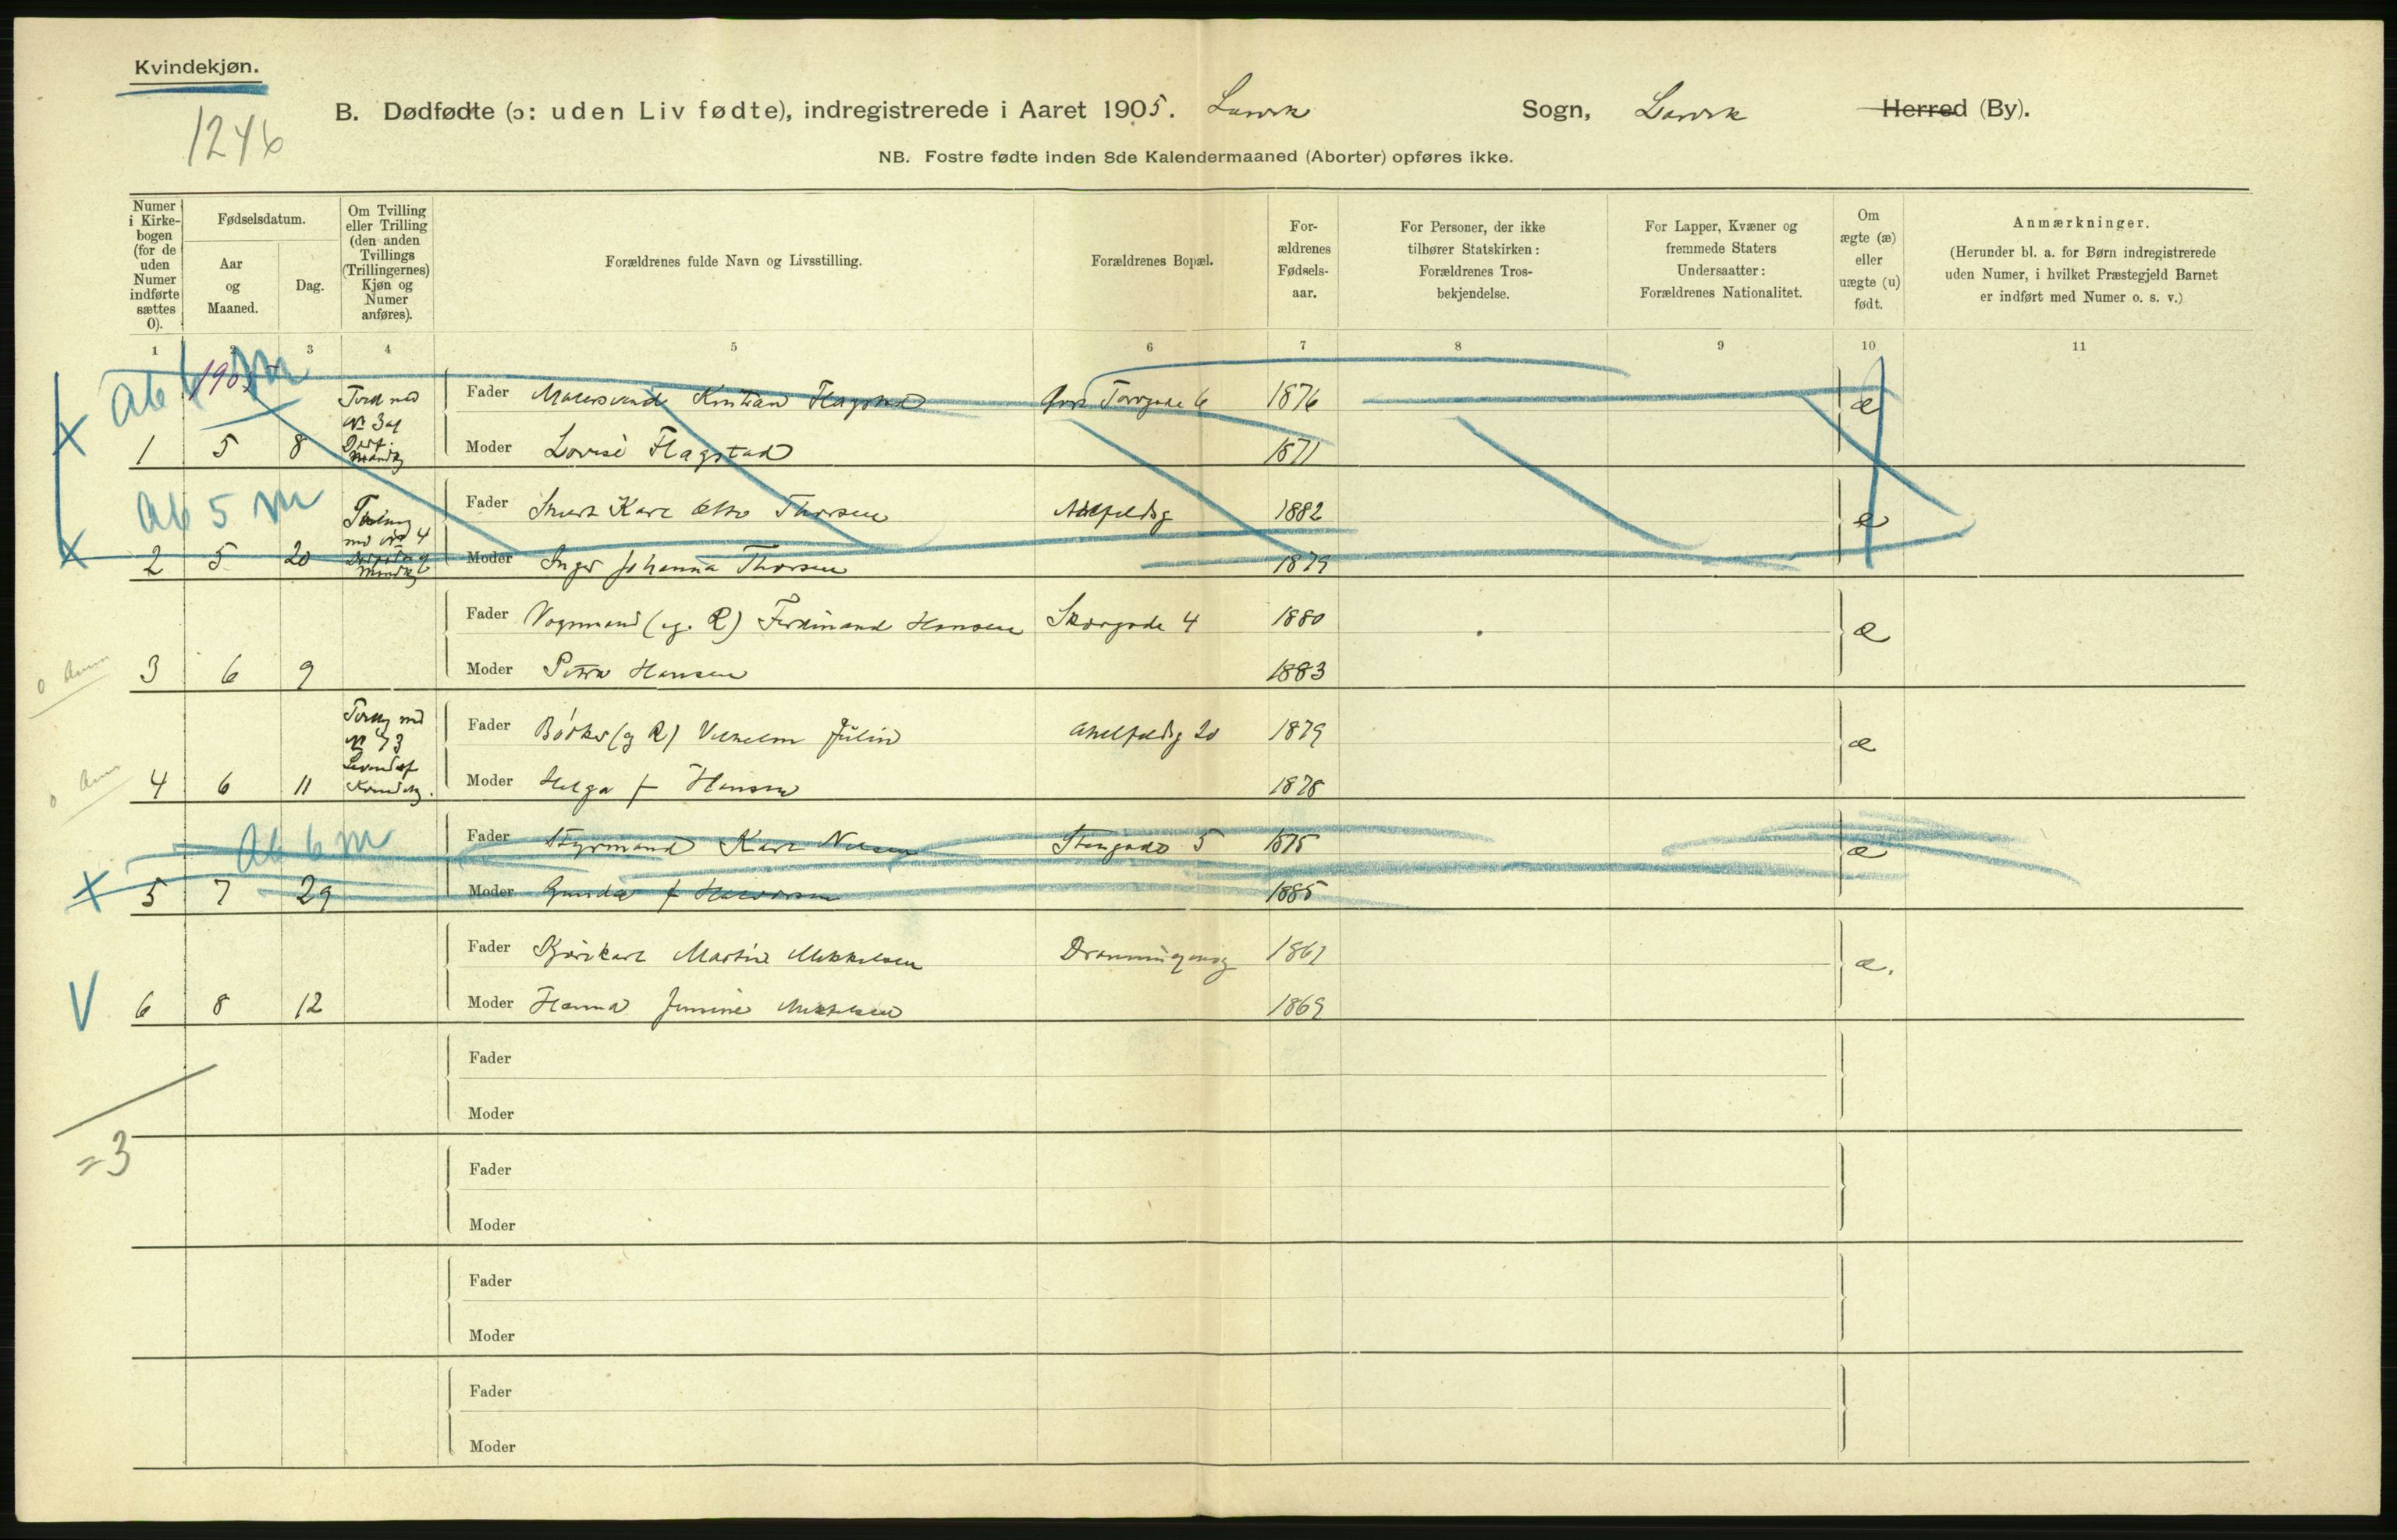 Kvindekjøn.
1246
B. Dødfødte (ɔ: uden Liv fødte), indregistrerede i Aaret 1905. Larvik Sogn, Larvik Herred (By).
NB. Fostre fødte inden 8de Kalendermaaned (Aborter) opføres ikke.
Numer i Kirkebogen (for de uden Numer indførte sættes 0).
Fødselsdatum.
Aar og Maaned.
Dag.
Om Tvilling eller Trilling (den anden Tvillings (Trillingernes) Kjøn og Numer anføres).
Forældrenes fulde Navn og Livsstilling.
Forældrenes Bopæl.
Forældrenes Fødselsaar.
For Personer, der ikke tilhører Statskirken: Forældrenes Trosbekjendelse.
For Lapper, Kvæner og fremmede Staters Undersaatter: Forældrenes Nationalitet.
Om ægte (æ) eller uægte (u) født.
Anmærkninger.
(Herunder bl. a. for Børn indregistrerede uden Numer, i hvilket Præstegjeld Barnet er indført med Numer o. s. v.)
1 2 3 4 5 6 7 8 9 10 11
Ab m
1905
Fader Malersvend Kristian Flagstad Torvgade 6 1876 æ
1 5 8 Moder Lovise Flagstad 1871
Ab 5 m
Fader Karl Otto Thorsen Ahlfeldsg 1882 æ
2 5 20 Moder Inger Johanna Thorsen 1879
Fader Vognmand (eg. R) Ferdinand Hansen Skovgade 4 1880 æ
3 6 9 Moder Petra Hansen 1883
Fader (eg R) Vilhelm Julin Ahlfeldsg 20 1879 æ
4 6 11 Moder Helga f Hansen 1878
Ab 6 m
Fader Styrmand Karl Nilsen Stengade 5 1875 æ
5 7 29 Moder Gunda f Halvorsen 1885
Fader Martin Mikkelsen Dronningensg 1867 æ.
V 6 8 12 Moder Hanna Jensine Mikkelsen 1869
Fader
Moder
=3
Fader
Moder
Fader
Moder
Fader
Moder